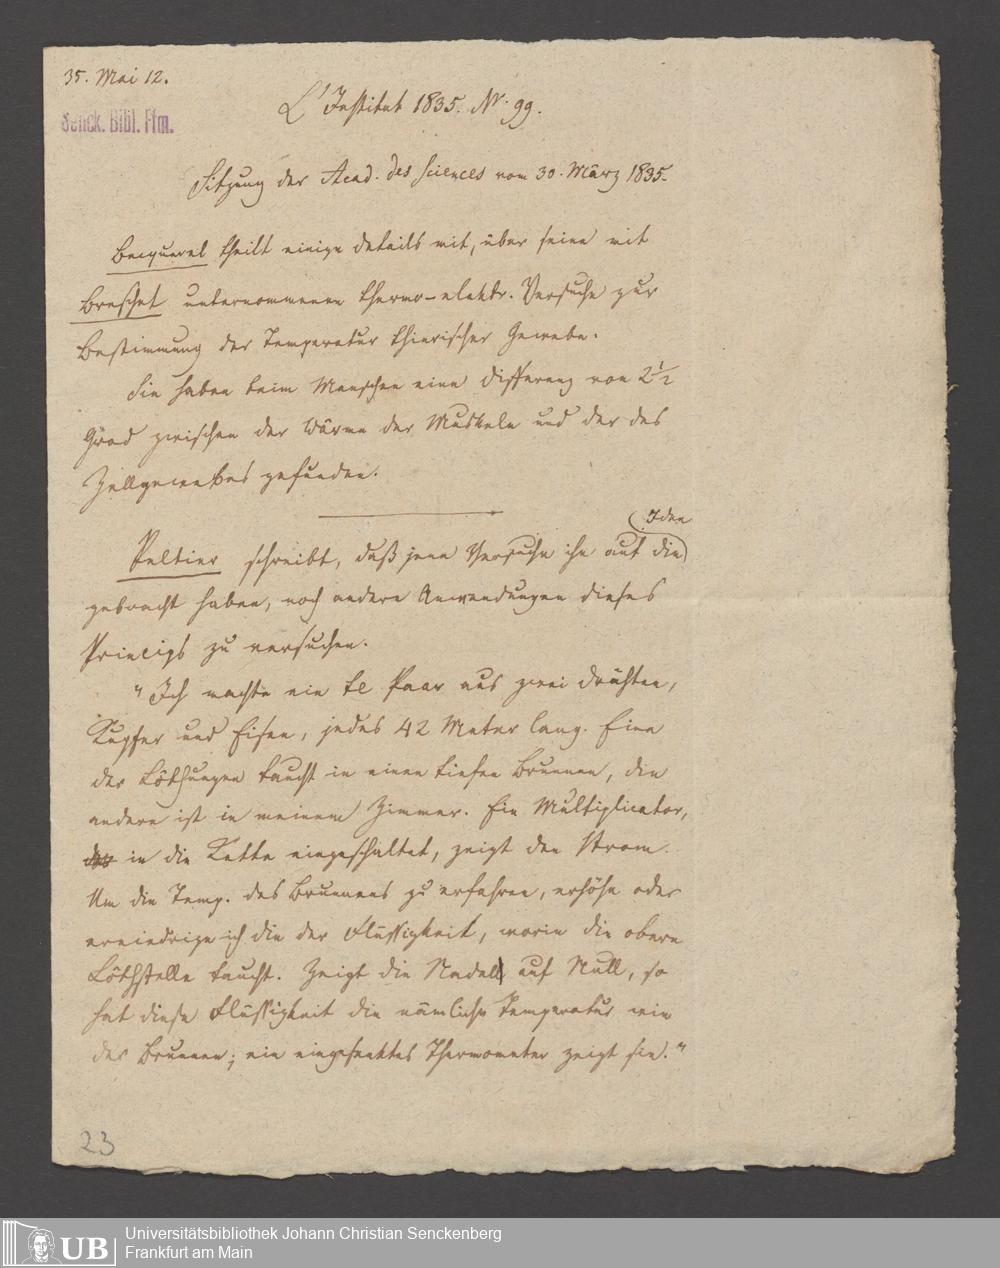 35. Mai 12.
Senck. Bibl. Ffm.
L'Institut 1835. Nr. 99.
Sitzung der Acad. des Sciences vom 30. März 1835.
Becquerel theilt einige Details mit, über seine mit
Breschet unternommenen thermo-elektr. Versuche zur
Bestimmung der Temperatur thierischer Gewebe.
Sie haben beim Menschen eine Differenz von 2½
Grad zwischen der Wärme der Muskeln und der des
Zellgewebes gefunden.
(Iden
Peltier schreibt, daß jene Versuche ihn auf die)
gebracht haben, noch andere Anwendungen dieses
Princips zu versuchen.
"Ich machte ein te Paar aus zwei Drähten,
Kupfer und Eisen, jedes 42 Meter lang. Eine
der Löthungen taucht in einen tiefen Brunnen, die
andere ist in meinem Zimmer. Ein Multiplicator,
in die Kette eingeschaltet, zeigt den Strom.
Um die Temp. des Brunnens zu erfahren, erhöhe oder
erniedrige ich die der Flüssigkeit, worin die obere
Löthstelle taucht. Zeigt die Nadel auf Null, so
hat diese Flüssigkeit die nämliche Temperatur wie
der Brunnen; ein eingesenktes Thermometer zeigt sie."
23
UB
Universitätsbibliothek Johann Christian Senckenberg
Frankfurt am Main